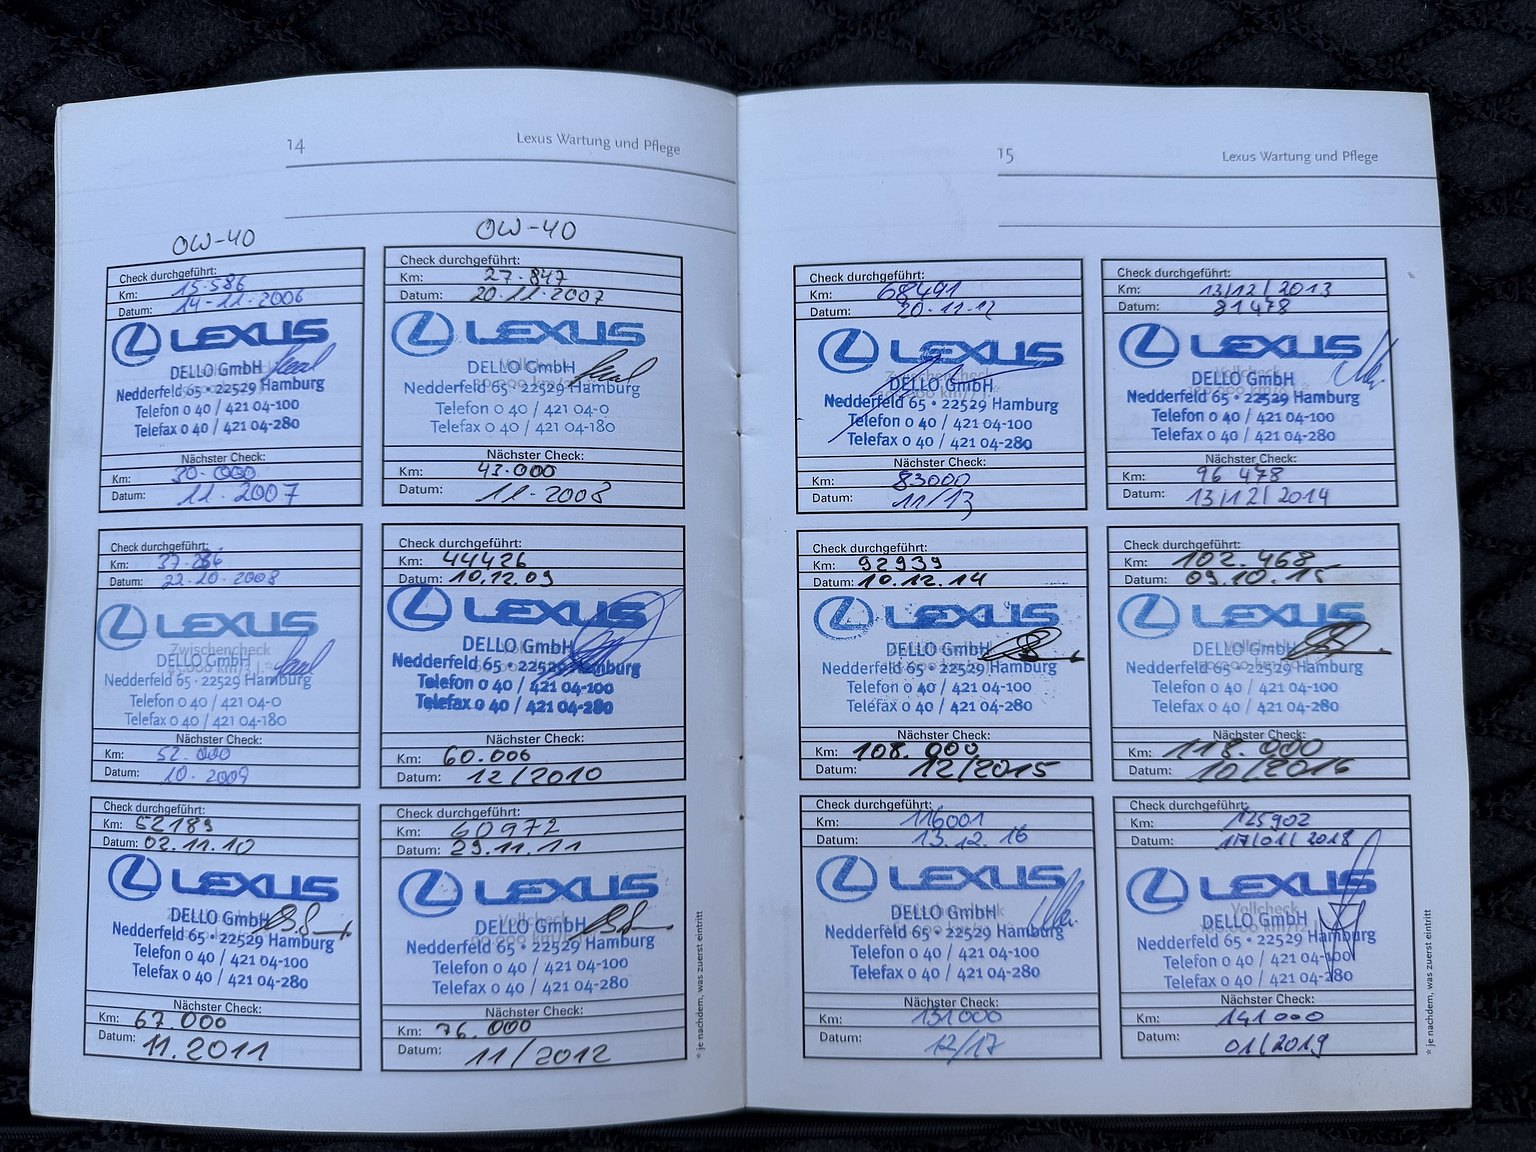 14
Lexus Wartung und Pflege
OW-40
OW-40
Check durchgeführt:
Km: 15.586
Datum: 14-11-2006
LEXUS
DELLO GmbH
Nedderfeld 65 • 22529 Hamburg
Telefon 0 40 / 421 04-100
Telefax 0 40 / 421 04-280
Nächster Check:
Km: 30.000
Datum: 11.2007
Check durchgeführt:
Km: 27.847
Datum: 20.11.2007
LEXUS
DELLO GmbH
Nedderfeld 65 • 22529 Hamburg
Telefon 0 40 / 421 04-0
Telefax 0 40 / 421 04-180
Nächster Check:
Km: 43.000
Datum: 11-2008
Check durchgeführt:
Km:
Datum: 22.10.2008
LEXUS
Zwischencheck
DELLO GmbH
Nedderfeld 65 • 22529 Hamburg
Telefon 0 40 / 421 04-0
Telefax 0 40 / 421 04-180
Nächster Check:
Km: 52.000
Datum: 10.2009
Check durchgeführt:
Km: 44426
Datum: 10.12.09
LEXUS
DELLO GmbH
Nedderfeld 65 • 22529 Hamburg
Telefon 0 40 / 421 04-100
Telefax 0 40 / 421 04-280
Nächster Check:
Km: 60.000
Datum: 12/2010
Check durchgeführt:
Km: 52189
Datum: 02.11.10
LEXUS
DELLO GmbH
Nedderfeld 65 • 22529 Hamburg
Telefon 0 40 / 421 04-100
Telefax 0 40 / 421 04-280
Nächster Check:
Km: 67.000
Datum: 11.2011
Check durchgeführt:
Km: 60972
Datum: 29.11.11
LEXUS
Vollcheck
DELLO GmbH
Nedderfeld 65 • 22529 Hamburg
Telefon 0 40 / 421 04-100
Telefax 0 40 / 421 04-280
Nächster Check:
Km: 76.000
Datum: 11/2012
* je nachdem, was zuerst eintritt
15
Lexus Wartung und Pflege
Check durchgeführt:
Km: 68491
Datum: 20.11.12
LEXUS
Zwischencheck
DELLO GmbH
Nedderfeld 65 • 22529 Hamburg
Telefon 0 40 / 421 04-100
Telefax 0 40 / 421 04-280
Nächster Check:
Km: 83000
Datum: 11/13
Check durchgeführt:
Km: 13/12/2013
Datum: 81478
LEXUS
Vollcheck
DELLO GmbH
Nedderfeld 65 • 22529 Hamburg
Telefon 0 40 / 421 04-100
Telefax 0 40 / 421 04-280
Nächster Check:
Km: 96 478
Datum: 13/12/2014
Check durchgeführt:
Km: 92939
Datum: 10.12.14
LEXUS
DELLO GmbH
Nedderfeld 65 • 22529 Hamburg
Telefon 0 40 / 421 04-100
Telefax 0 40 / 421 04-280
Nächster Check:
Km: 108.000
Datum: 12/2015
Check durchgeführt:
Km: 102.468
Datum: 09.10.15
LEXUS
Vollcheck
DELLO GmbH
Nedderfeld 65 • 22529 Hamburg
Telefon 0 40 / 421 04-100
Telefax 0 40 / 421 04-280
Nächster Check:
Km: 118.000
Datum: 10/2016
Check durchgeführt:
Km: 116001
Datum: 13.12.16
LEXUS
DELLO GmbH
Nedderfeld 65 • 22529 Hamburg
Telefon 0 40 / 421 04-100
Telefax 0 40 / 421 04-280
Nächster Check:
Km: 131000
Datum: 12/17
Check durchgeführt:
Km: 125902
Datum: 17/01/2018
LEXUS
Vollcheck
DELLO GmbH
Nedderfeld 65 • 22529 Hamburg
Telefon 0 40 / 421 04-100
Telefax 0 40 / 421 04-280
Nächster Check:
Km: 141000
Datum: 01/2019
* je nachdem, was zuerst eintritt